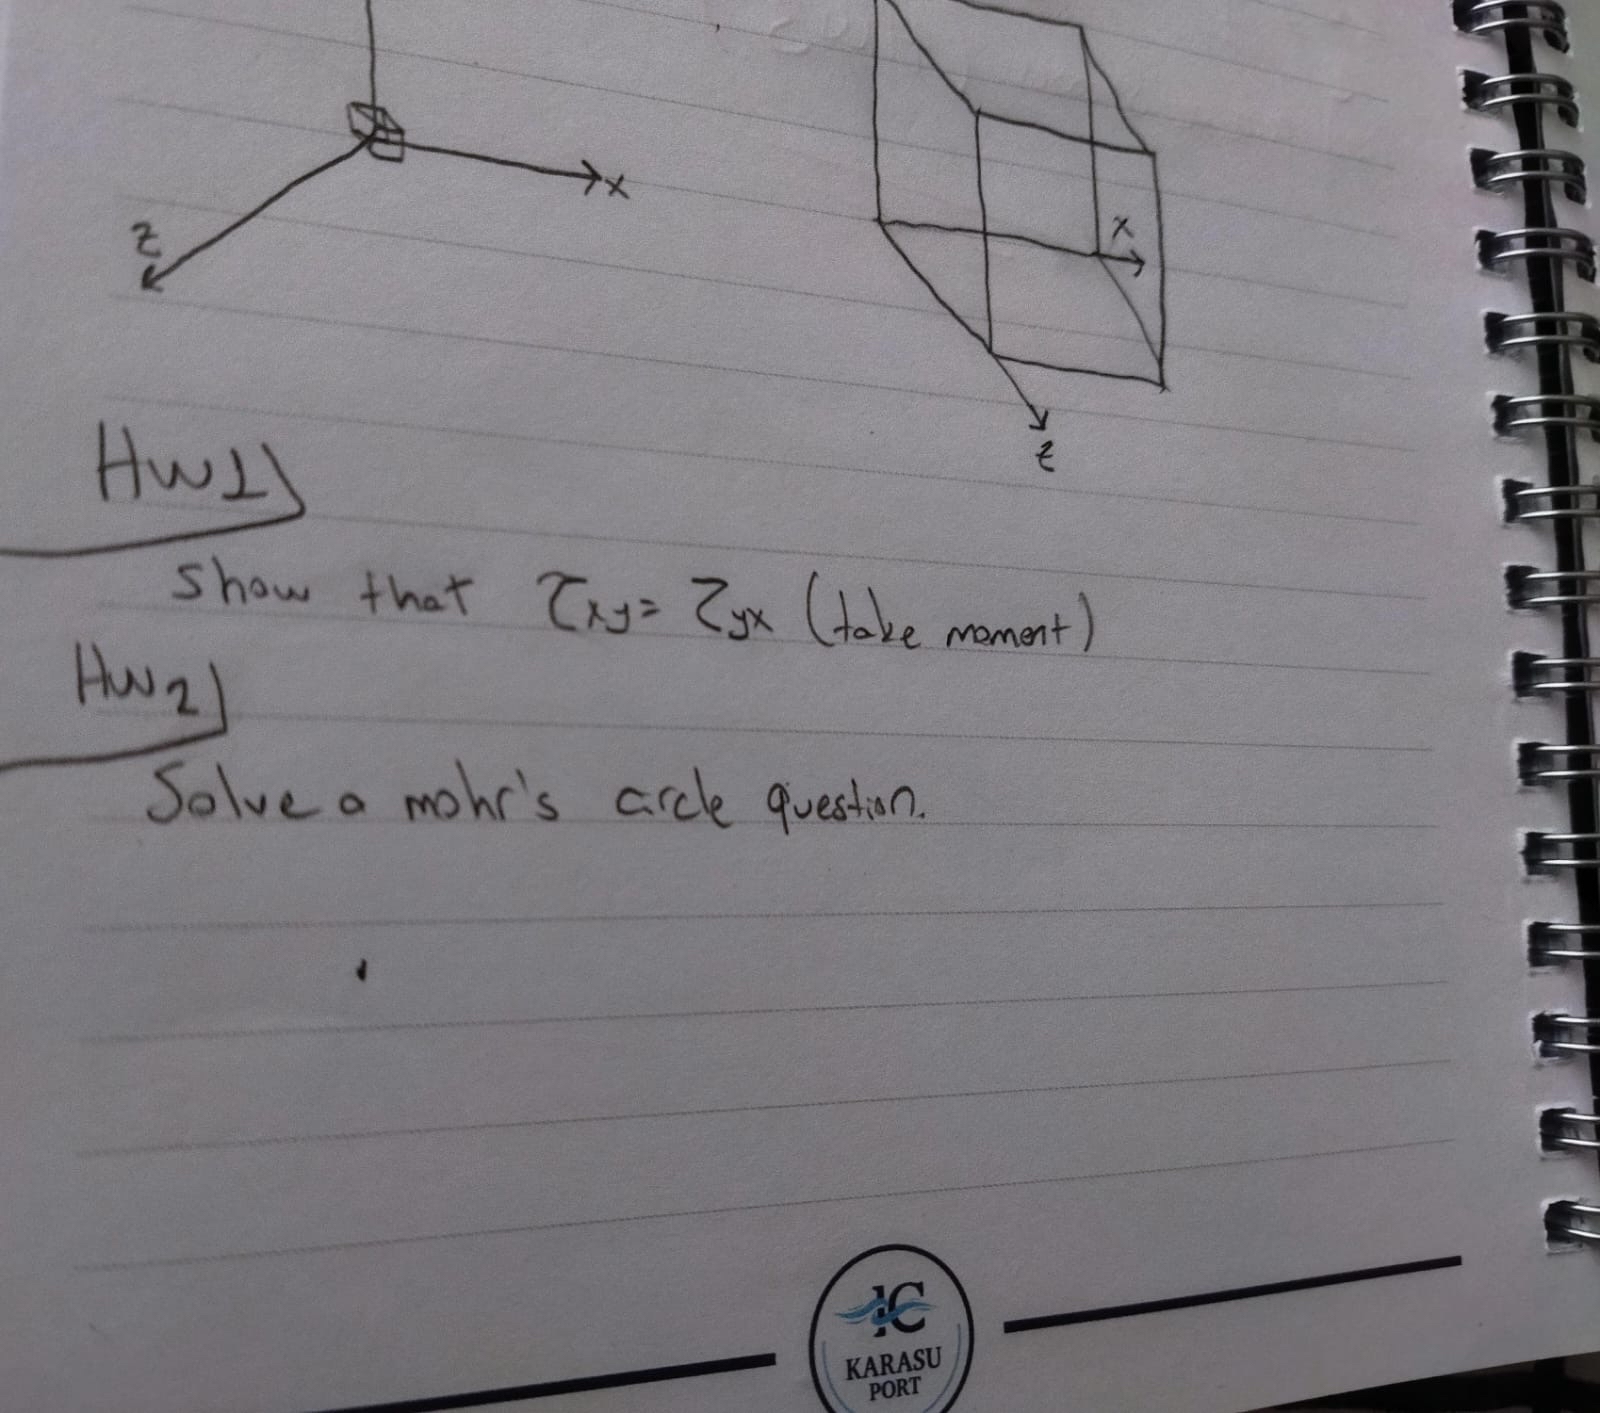 x
z
x
z
HW1
Show that τxy = τyx (take moment)
HW2
Solve a mohr's circle question.
IC
KARASU
PORT